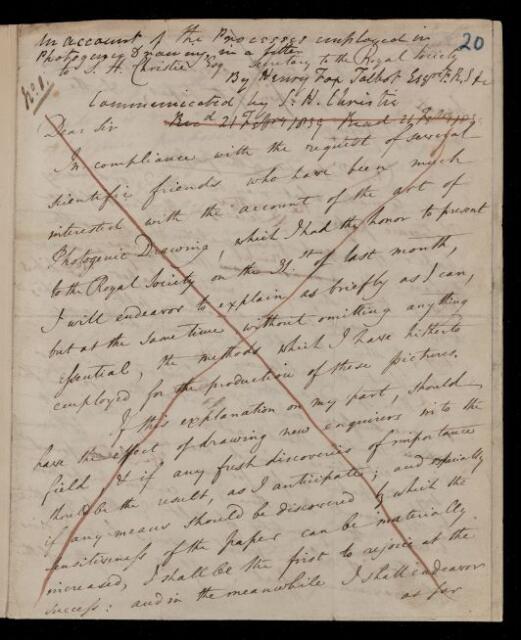 20
No. 1.
An account of the Processes employed in
Photogenic Drawing, in a letter
to S. H. Christie Esqr Secretary to the Royal Society
By Henry Fox Talbot Esqr F.R.S &c
Communicated by S. H. Christie
Recd 21 Feby 1839 Read 21 Feby 1839
Dear Sir
In compliance with the request of several
scientific friends who have been much
interested with the account of the art of
Photogenic Drawing, which I had the honor to present
to the Royal Society on the 31.st of last month,
I will endeavor to explain as briefly as I can,
but at the same time without omitting anything
essential, the methods which I have hitherto
employed for the production of these pictures.
If this explanation on my part, should
have the effect of drawing new enquirers into the
field & if any fresh discoveries of importance
should be the result, as I anticipate; and especially
if any means should be discovered by which the
sensitiveness of the paper can be materially
increased, I shall be the first to rejoice at the
success: and in the meanwhile I shall endeavor
as far